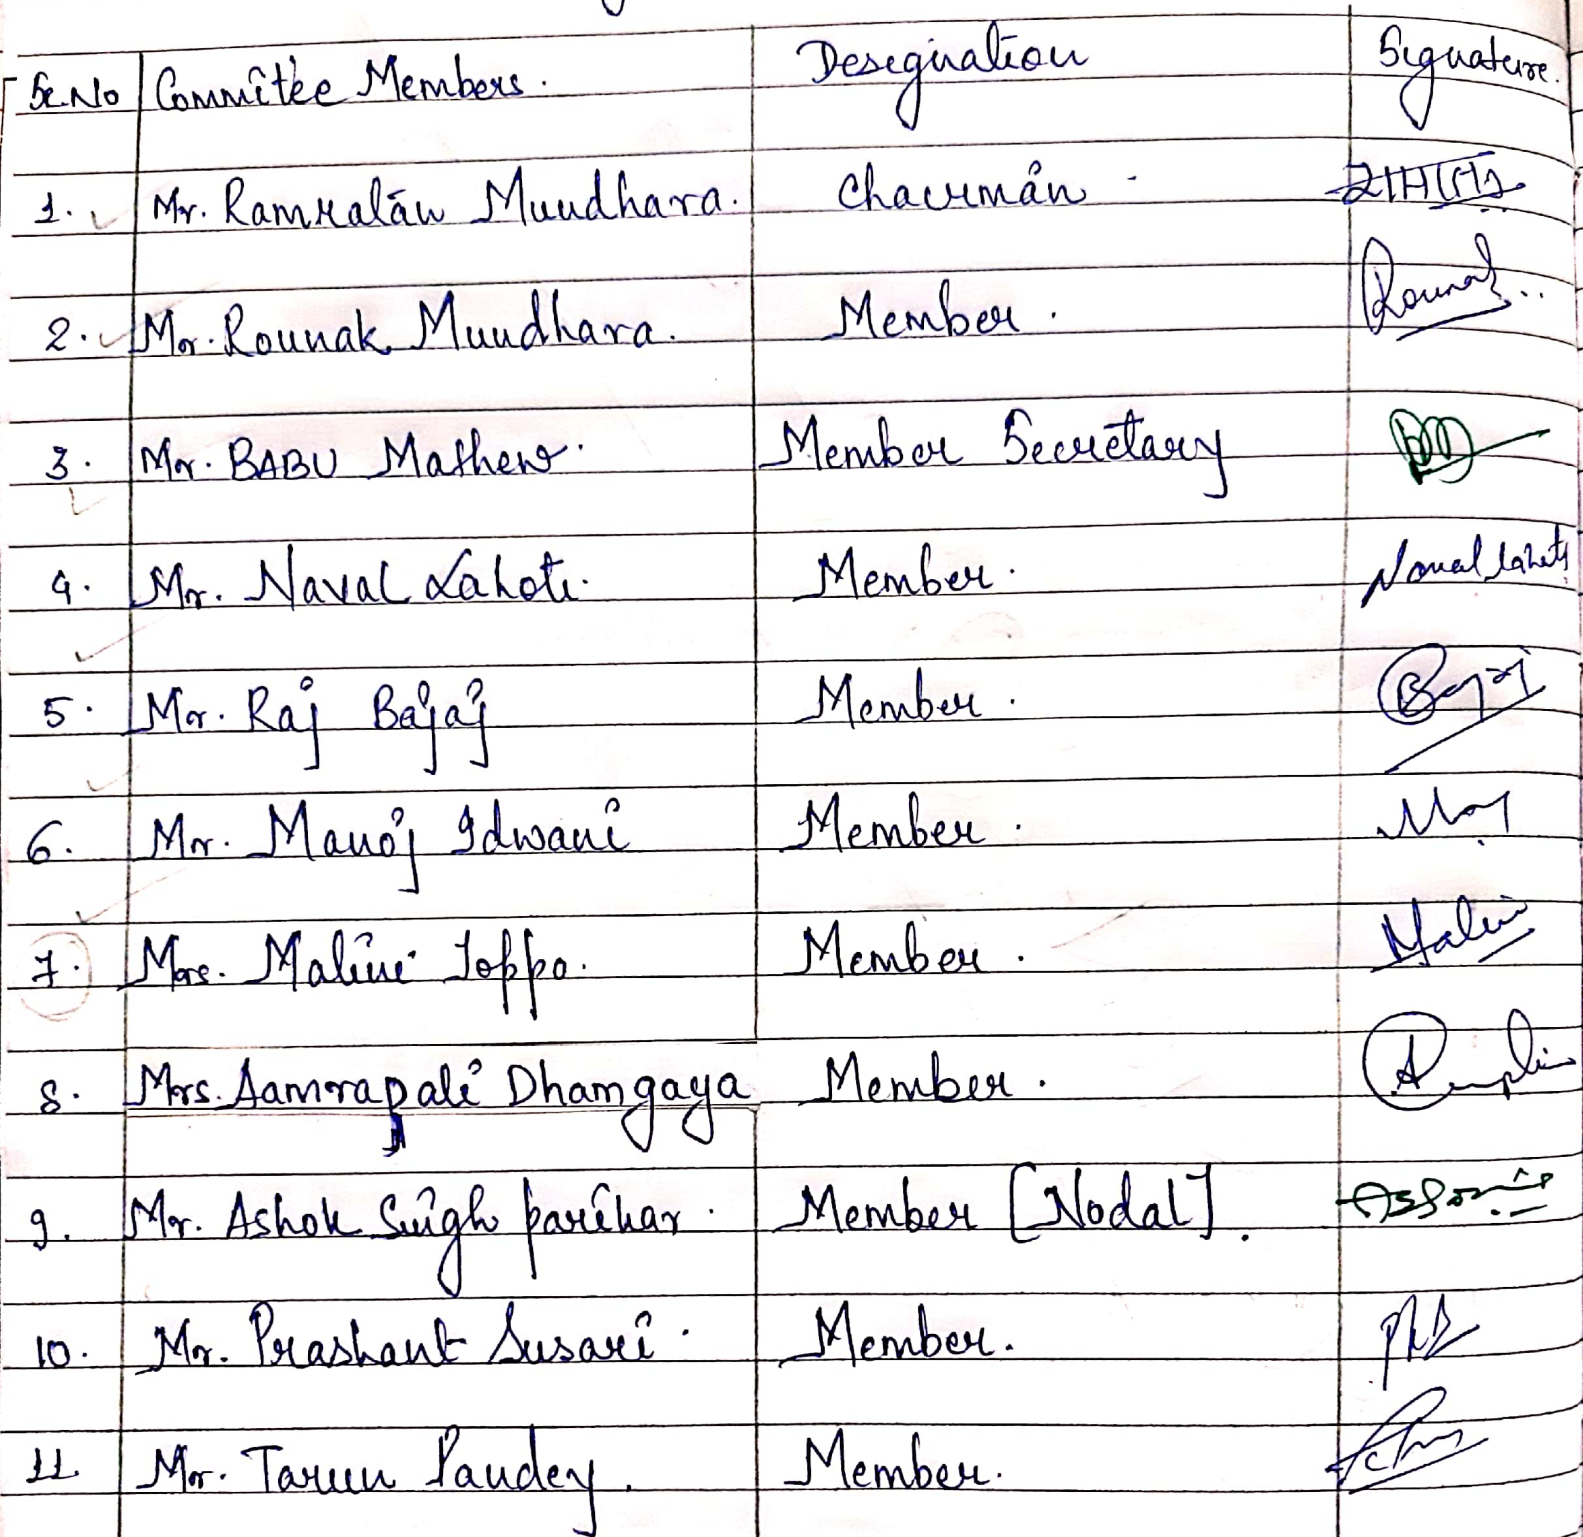 Sr.No Committee Members. Designation Signature.
1. Mr. Ramratan Mundhara. Chairman
2. Mr. Rounak Mundhara. Member. Rounak
3. Mr. BABU Mathew. Member Secretary
4. Mr. Naval Lahoti. Member. Naval Lahoti
5. Mr. Raj Bajaj Member. Bajaj
6. Mr. Manoj Idwani Member.
7. Mrs. Malini Toppo. Member. Malini
8. Mrs. Aamrapali Dhamgaya Member.
9. Mr. Ashok Singh parihar. Member [Nodal].
10. Mr. Prashant Susari. Member.
11 Mr. Tarun Pandey. Member.